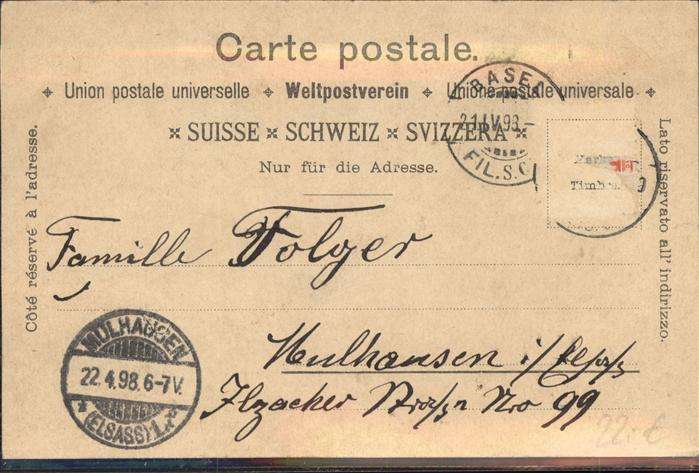 Carte postale.
Union postale universelle Weltpostverein Unione postale universale
SUISSE SCHWEIZ SVIZZERA
Nur für die Adresse.
Côté réservé à l'adresse.
Lato riservato all' indirizzo.
BASEL
21.IV.98.-
FIL.S.
Marke
Timbre
Familie Folger
Mulhausen i/Elsaß
Ilzacher Straßn Nro 99
MÜLHAUSEN
22.4.98.6-7V.
(ELSASS) 1.